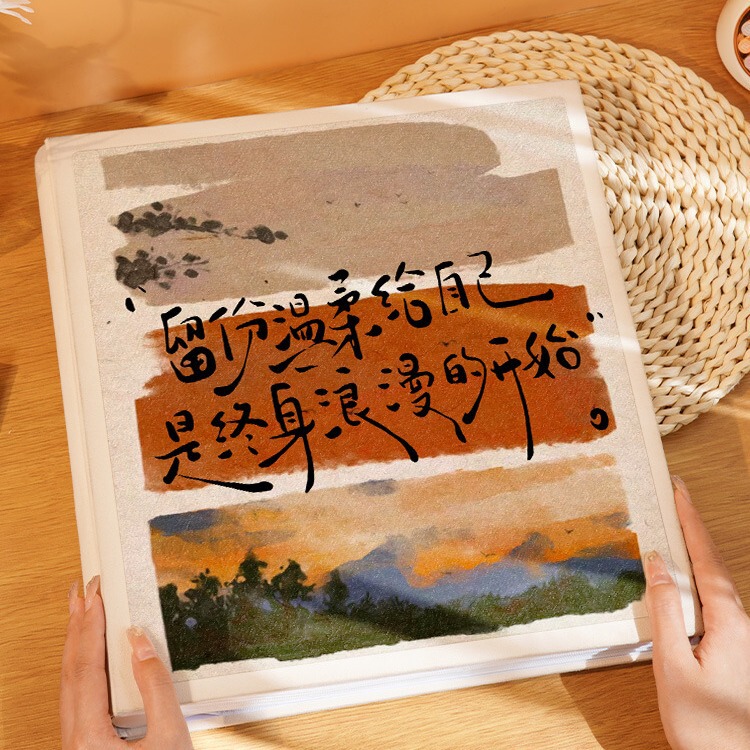 “留份温柔给自己”
是终身浪漫的开始。